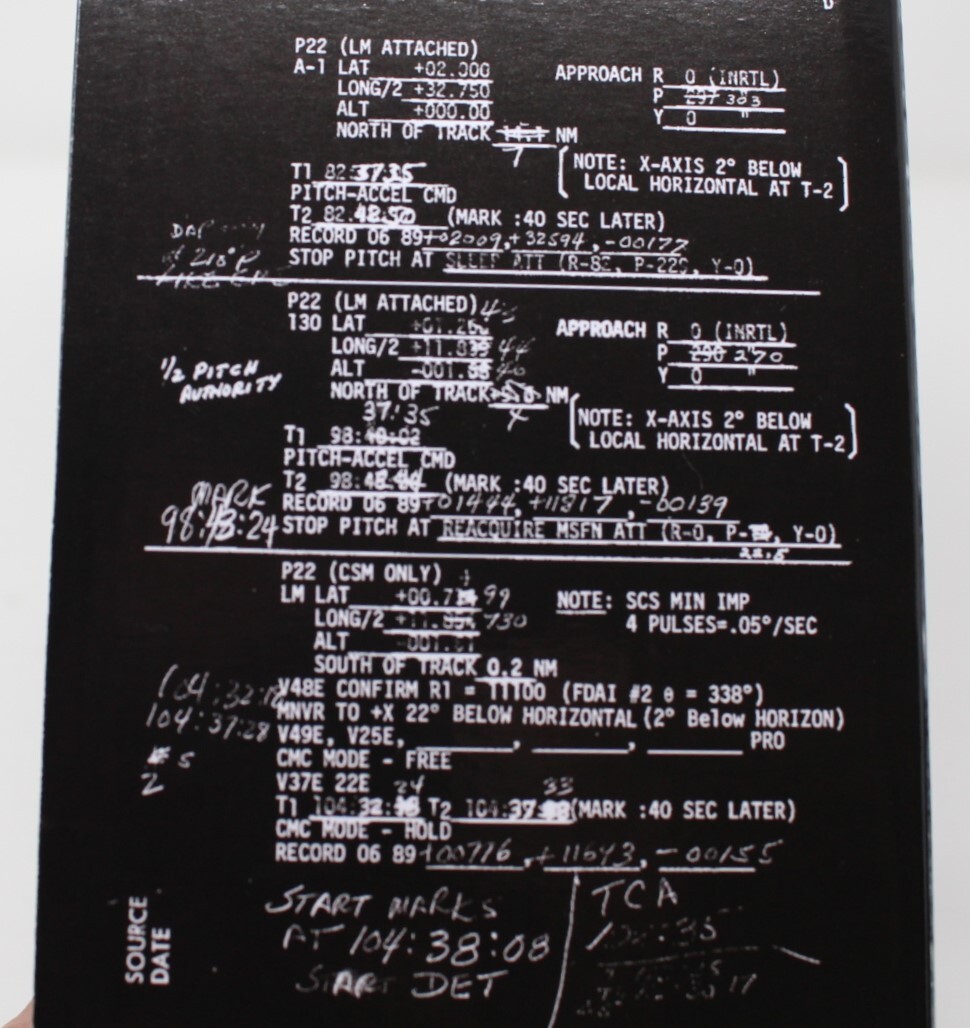 P22 (LM ATTACHED)
A-1 LAT +02.000
LONG/2 +32.750
ALT +000.00
NORTH OF TRACK NM
APPROACH R 0 (INRTL)
P 297 303 "
Y 0 "
[NOTE: X-AXIS 2° BELOW
LOCAL HORIZONTAL AT T-2]
T1 82:37:35
PITCH-ACCEL CMD
T2 82: (MARK :40 SEC LATER)
RECORD 06 89 +02009, +32594, -00177
STOP PITCH AT SLEEP ATT (R-82, P-220, Y-0)
P22 (LM ATTACHED)
130 LAT
LONG/2
ALT
NORTH OF TRACK NM
APPROACH R 0 (INRTL)
P 290 270 "
Y 0 "
1/2 PITCH
AUTHORITY
[NOTE: X-AXIS 2° BELOW
LOCAL HORIZONTAL AT T-2]
37:35
T1 98:40:02
PITCH-ACCEL CMD
T2 98: (MARK :40 SEC LATER)
MARK
RECORD 06 89 +01444, +11817, -00139
98:43:24
STOP PITCH AT REACQUIRE MSFN ATT (R-0, P- , Y-0)
22.5
P22 (CSM ONLY)
LM LAT 99
LONG/2 730
ALT
SOUTH OF TRACK 0.2 NM
NOTE: SCS MIN IMP
4 PULSES=.05°/SEC
V48E CONFIRM R1 = 11100 (FDAI #2 θ = 338°)
104:37:28
MNVR TO +X 22° BELOW HORIZONTAL (2° Below HORIZON)
V49E, V25E, , , PRO
CMC MODE - FREE
V37E 22E 24 33
T1 104: T2 104: (MARK :40 SEC LATER)
CMC MODE - HOLD
RECORD 06 89 +00776, +11643, -00155
START MARKS
AT 104:38:08
START DET
TCA
SOURCE
DATE